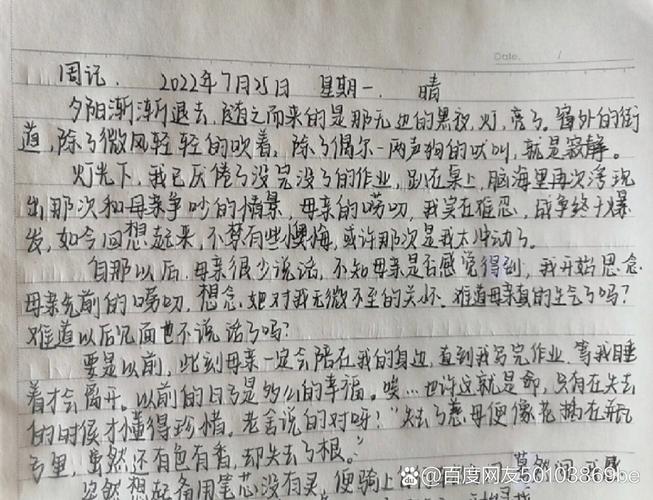 Date. /
周记. 2022年7月25日 星期一. 晴
夕阳渐渐退去,随之而来的是那无边的黑夜,灯,亮了。窗外的街
道,除了微风轻轻的吹着,除了偶尔一两声狗的吠叫,就是寂静。
灯光下,我已厌倦了没完没了的作业,趴在桌上,脑海里再次浮现
出那次和母亲争吵的情景,母亲的唠叨,我实在难忍,战争终于爆
发,如今回想起来,不禁有些懊悔,或许那次是我太冲动了。
自那以后,母亲很少说话,不知母亲是否感觉得到,我开始思念
母亲先前的唠叨,想念,她对我无微不至的关怀。难道母亲真的生气了吗?
难道以后见面也不说话了吗?
要是以前,此刻母亲一定会陪在我的身边,直到我写完作业,等我睡
着才会离开。以前的日子是多么的幸福。唉…也许这就是命,只有在失去
的时侯才懂得珍惜。老舍说的对呀!“失了慈母便像花插在瓶
子里,虽然还有色有香,却失去了根。”
突然想起备用笔芯没有买,便骑上
百度网友50103869be